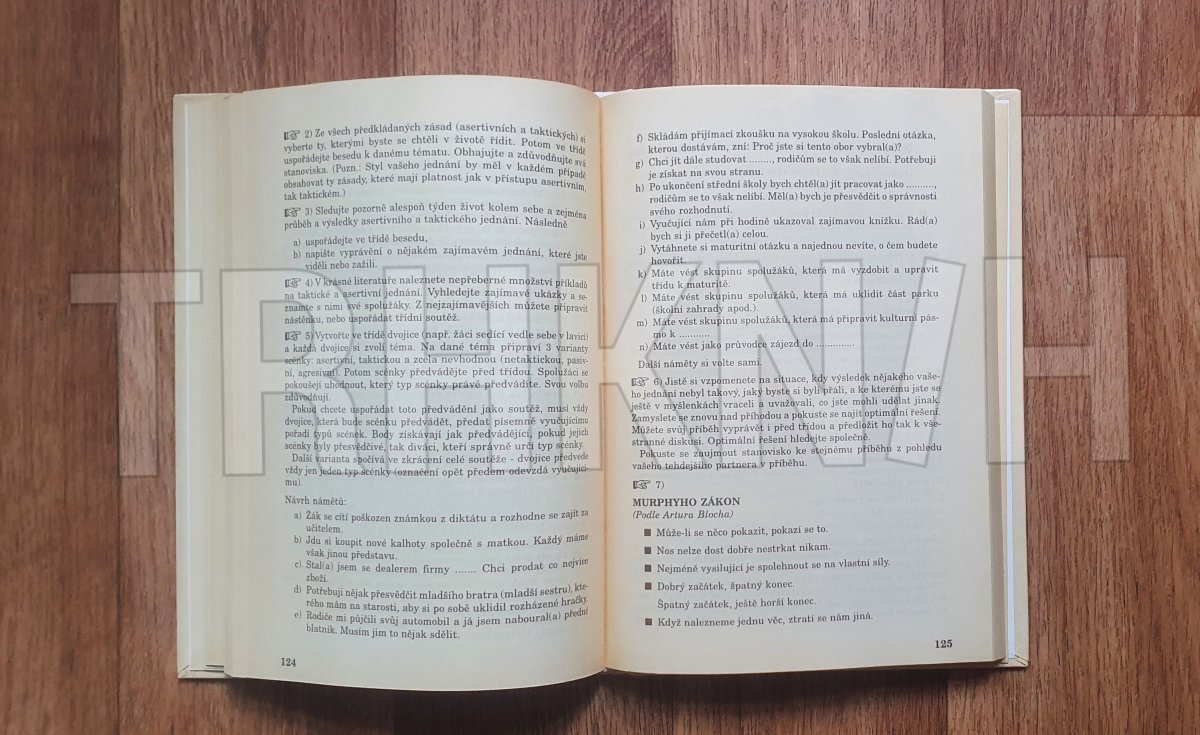 ☞ 2) Ze všech předkládaných zásad (asertivních a taktických) si
vyberte ty, kterými byste se chtěli v životě řídit. Potom ve třídě
uspořádejte besedu k danému tématu. Obhajujte a zdůvodňujte svá
stanoviska. (Pozn.: Styl vašeho jednání by měl v každém případě
obsahovat ty zásady, které mají platnost jak v přístupu asertivním,
tak taktickém.)
☞ 3) Sledujte pozorně alespoň týden život kolem sebe a zejména
průběh a výsledky asertivního a taktického jednání. Následně
a) uspořádejte ve třídě besedu,
b) napište vyprávění o nějakém zajímavém jednání, které jste
viděli nebo zažili.
☞ 4) V krásné literatuře naleznete nepřeberné množství příkladů
na taktické a asertivní jednání. Vyhledejte zajímavé ukázky a se-
znamte s nimi své spolužáky. Z nejzajímavějších můžete připravit
nástěnku, nebo uspořádat třídní soutěž.
☞ 5) Vytvořte ve třídě dvojice (např. žáci sedící vedle sebe v lavici)
a každá dvojice si zvolí téma. Na dané téma připraví 3 varianty
scénky: asertivní, taktickou a zcela nevhodnou (netaktickou, pasiv-
ní, agresivní). Potom scénky předvádějte před třídou. Spolužáci se
pokoušejí uhodnout, který typ scénky právě předvádíte. Svou volbu
zdůvodňují.
Pokud chcete uspořádat toto předvádění jako soutěž, musí vždy
dvojice, která bude scénku předvádět, předat písemně vyučujícímu
pořadí typů scének. Body získávají jak předvádějící, pokud jejich
scénky byly přesvědčivé, tak diváci, kteří správně určí typ scénky.
Další varianta spočívá ve zkrácení celé soutěže - dvojice předvede
vždy jen jeden typ scénky (označení opět předem odevzdá vyučující-
mu).
Návrh námětů:
a) Žák se cítí poškozen známkou z diktátu a rozhodne se zajít za
učitelem.
b) Jdu si koupit nové kalhoty společně s matkou. Každý máme
však jinou představu.
c) Stal(a) jsem se dealerem firmy ....... Chci prodat co nejvíce
zboží.
d) Potřebuji nějak přesvědčit mladšího bratra (mladší sestru), kte-
rého mám na starosti, aby si po sobě uklidil rozházené hračky.
e) Rodiče mi půjčili svůj automobil a já jsem naboural(a) přední
blatník. Musím jim to nějak sdělit.
124
f) Skládám přijímací zkoušku na vysokou školu. Poslední otázka,
kterou dostávám, zní: Proč jste si tento obor vybral(a)?
g) Chci jít dále studovat ........, rodičům se to však nelíbí. Potřebuji
je získat na svou stranu.
h) Po ukončení střední školy bych chtěl(a) jít pracovat jako ..........,
rodičům se to však nelíbí. Měl(a) bych je přesvědčit o správnosti
svého rozhodnutí.
i) Vyučující nám při hodině ukazoval zajímavou knížku. Rád(a)
bych si ji přečetl(a) celou.
j) Vytáhnete si maturitní otázku a najednou nevíte, o čem budete
hovořit.
k) Máte vést skupinu spolužáků, která má vyzdobit a upravit
třídu k maturitě.
l) Máte vést skupinu spolužáků, která má uklidit část parku
(školní zahrady apod.).
m) Máte vést skupinu spolužáků, která má připravit kulturní pás-
mo k ...........
n) Máte vést jako průvodce zájezd do ..............
Další náměty si volte sami.
☞ 6) Jistě si vzpomenete na situace, kdy výsledek nějakého vaše-
ho jednání nebyl takový, jaký byste si byli přáli, a ke kterému jste se
ještě v myšlenkách vraceli a uvažovali, co jste mohli udělat jinak.
Zamyslete se znovu nad příhodou a pokuste se najít optimální řešení.
Můžete svůj příběh vyprávět i před třídou a předložit ho tak k vše-
stranné diskusi. Optimální řešení hledejte společně.
Pokuste se zaujmout stanovisko ke stejnému příběhu z pohledu
vašeho tehdejšího partnera v příběhu.
☞ 7)
MURPHYHO ZÁKON
(Podle Artura Blocha)
■ Může-li se něco pokazit, pokazí se to.
■ Nos nelze dost dobře nestrkat nikam.
■ Nejméně vysilující je spolehnout se na vlastní síly.
■ Dobrý začátek, špatný konec.
Špatný začátek, ještě horší konec.
■ Když nalezneme jednu věc, ztratí se nám jiná.
125
TRHKNIH